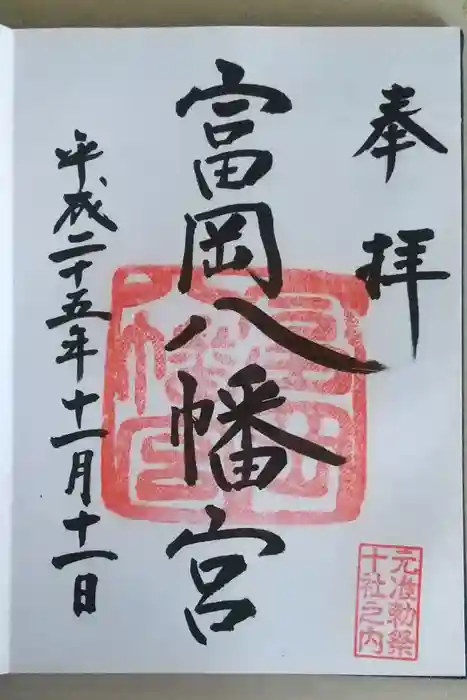 奉拝
富岡八幡宮
平成二十五年十一月十一日
元准勅祭
十社之内